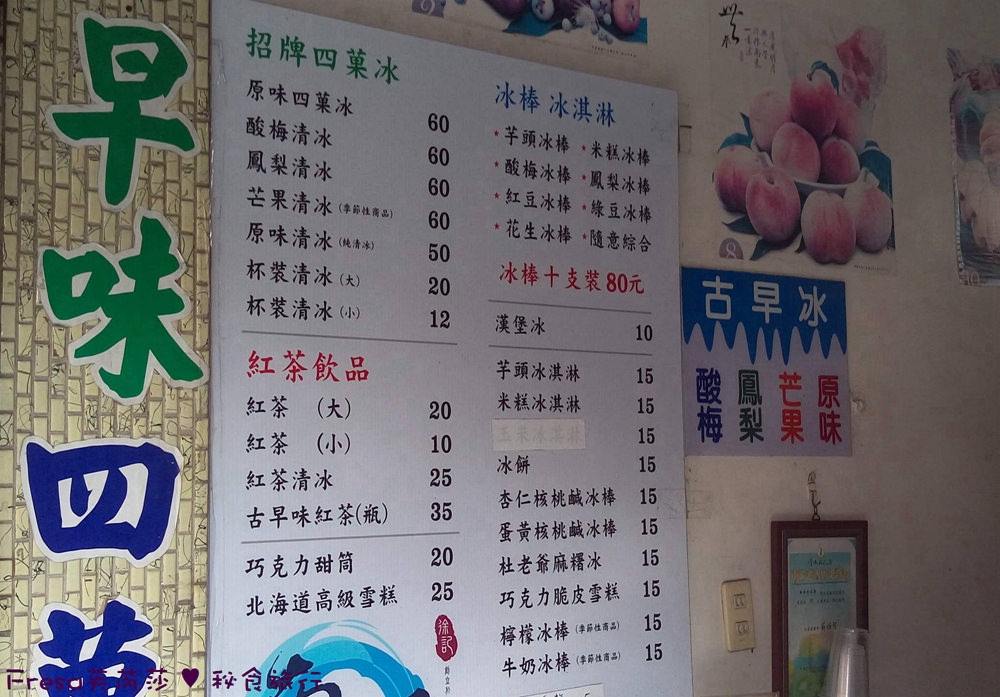 早味四菓
招牌四菓冰
原味四菓冰 60
酸梅清冰 60
鳳梨清冰 60
芒果清冰(季節性商品) 60
原味清冰(純清冰) 50
杯裝清冰(大) 20
杯裝清冰(小) 12
紅茶飲品
紅茶 (大) 20
紅茶 (小) 10
紅茶清冰 25
古早味紅茶(瓶) 35
巧克力甜筒 20
北海道高級雪糕 25
徐記
創立於
冰棒 冰淇淋
*芋頭冰棒 *米糕冰棒
*酸梅冰棒 *鳳梨冰棒
*紅豆冰棒 *綠豆冰棒
*花生冰棒 *隨意綜合
冰棒十支裝80元
漢堡冰 10
芋頭冰淇淋 15
米糕冰淇淋 15
玉米冰淇淋 15
冰餅 15
杏仁核桃鹹冰棒 15
蛋黃核桃鹹冰棒 15
杜老爺麻糬冰 15
巧克力脆皮雪糕 15
檸檬冰棒(季節性商品) 15
牛奶冰棒(季節性商品) 15
8
古早冰
酸梅 鳳梨 芒果 原味
Fresa芙芮莎♥秘食旅行